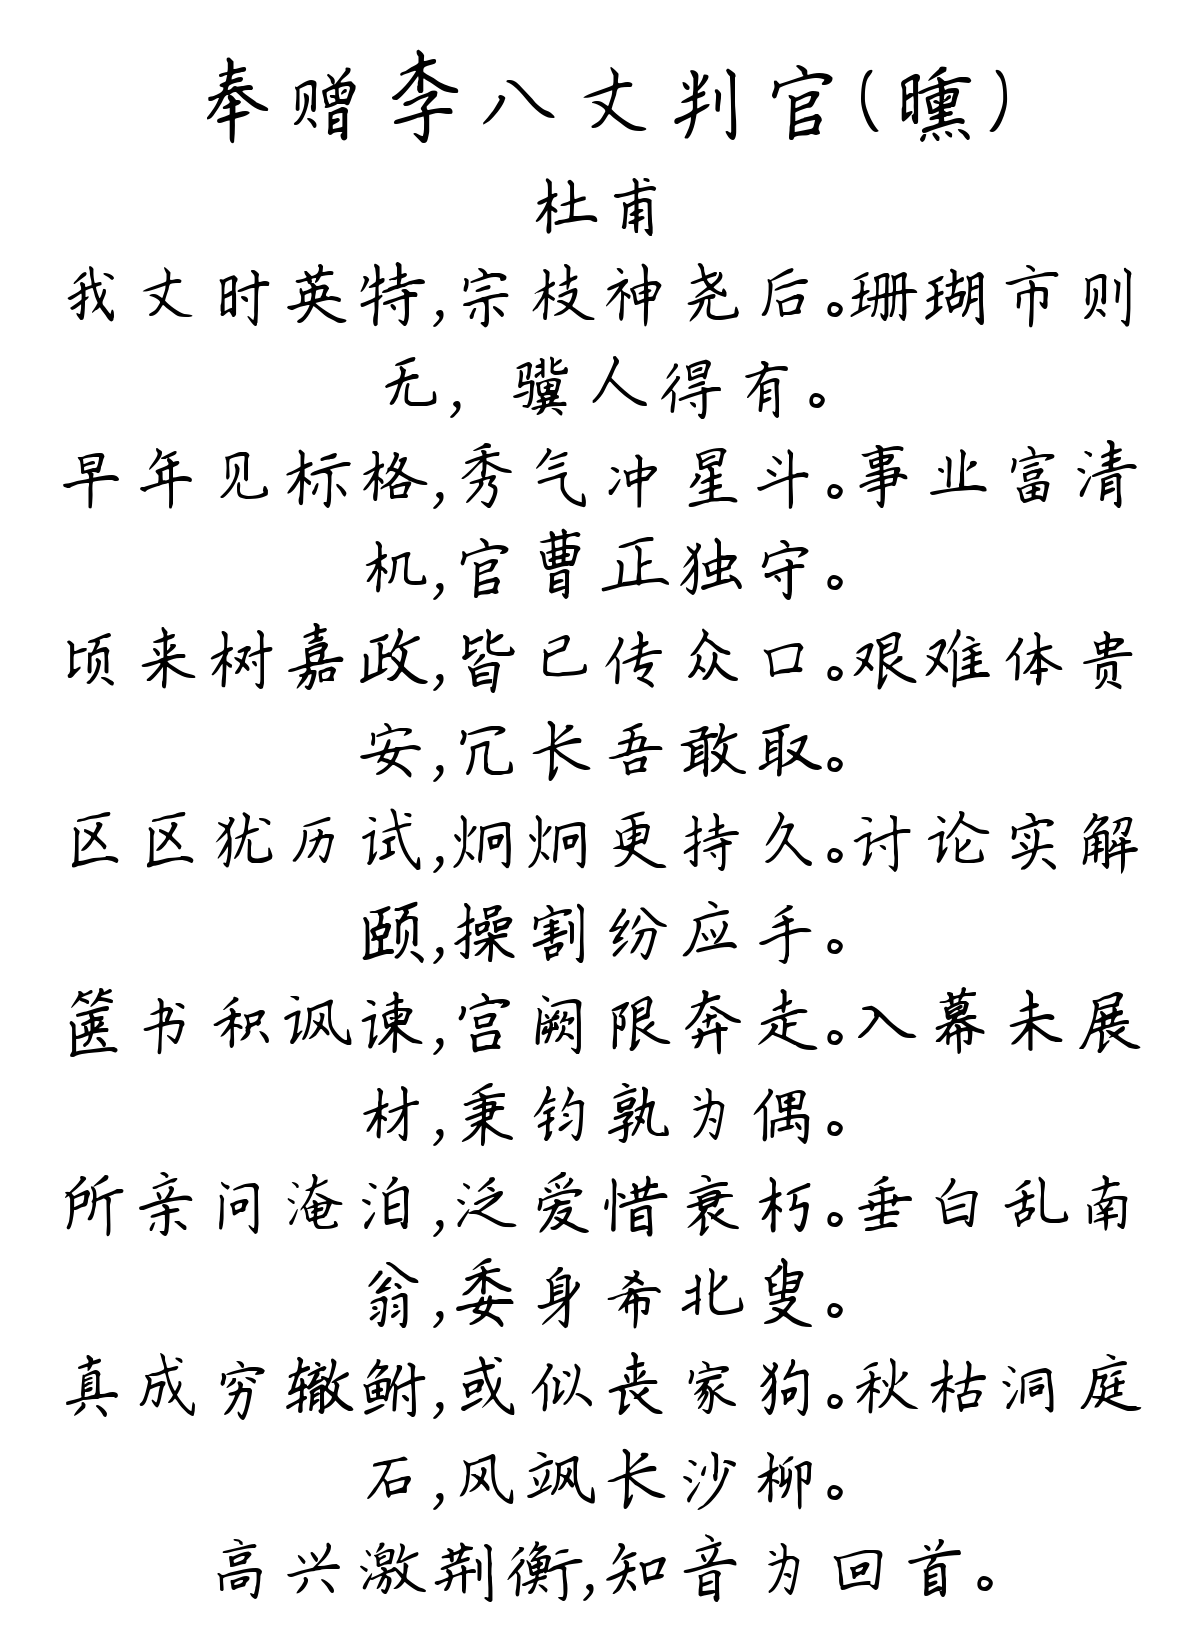 奉赠李八丈判官(曛)
杜甫
我丈时英特,宗枝神尧后。珊瑚市则
无，骥人得有。
早年见标格,秀气冲星斗。事业富清
机,官曹正独守。
顷来树嘉政,皆已传众口。艰难体贵
安,冗长吾敢取。
区区犹历试,炯炯更持久。讨论实解
颐,操割纷应手。
箧书积讽谏,宫阙限奔走。入幕未展
材,秉钧孰为偶。
所亲问淹泊,泛爱惜衰朽。垂白乱南
翁,委身希北叟。
真成穷辙鲋,或似丧家狗。秋枯洞庭
石,风飒长沙柳。
高兴激荆衡,知音为回首。